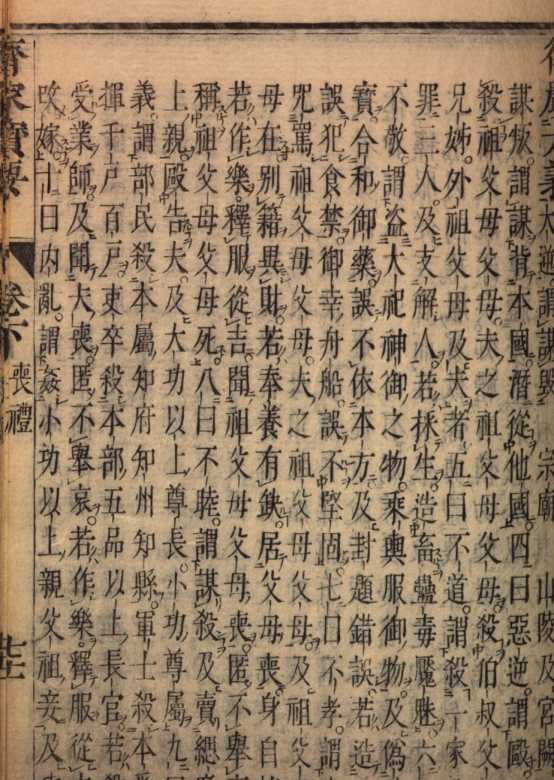 大逆謂謀毀 宗廟 山陵及宮闕
謀叛謂謀背本國潛從他國四曰惡逆謂毆
殺祖父母父母夫之祖父母父母殺伯叔父
兄姊外祖父母及夫者五曰不道謂殺一家
罪三人及支解人若採生造畜蠱毒魘魅六
不敬謂盜大祀神御之物乘輿服御物及偽
寶合和御藥誤不依本方及封題錯誤若造
誤犯食禁御幸舟船誤不堅固七曰不孝謂
咒罵祖父母父母夫之祖父母父母及祖父
母在別籍異財若奉養有缺居父母喪身自
若作樂釋服從吉聞祖父母父母喪匿不舉
稱祖父母父母死八曰不睦謂謀殺及賣緦
上親毆告夫及大功以上尊長小功尊屬九
義謂部民殺本屬知府知州知縣軍士殺本
揮千戶百戶吏卒殺本部五品以上長官若殺
受業師及聞夫喪匿不舉哀若作樂釋服從
改嫁十曰內亂謂姦小功以上親父祖妾及
齊家寶要 卷下 喪禮